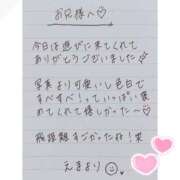 お兄様へ♡
今日は遊びに来てくれて
ありがとうございました♡
写真より可愛いし色白で
すべすべ！っていっぱい褒
めてくれて嬉しかった〜♡
すごかったね！笑
えまより☺